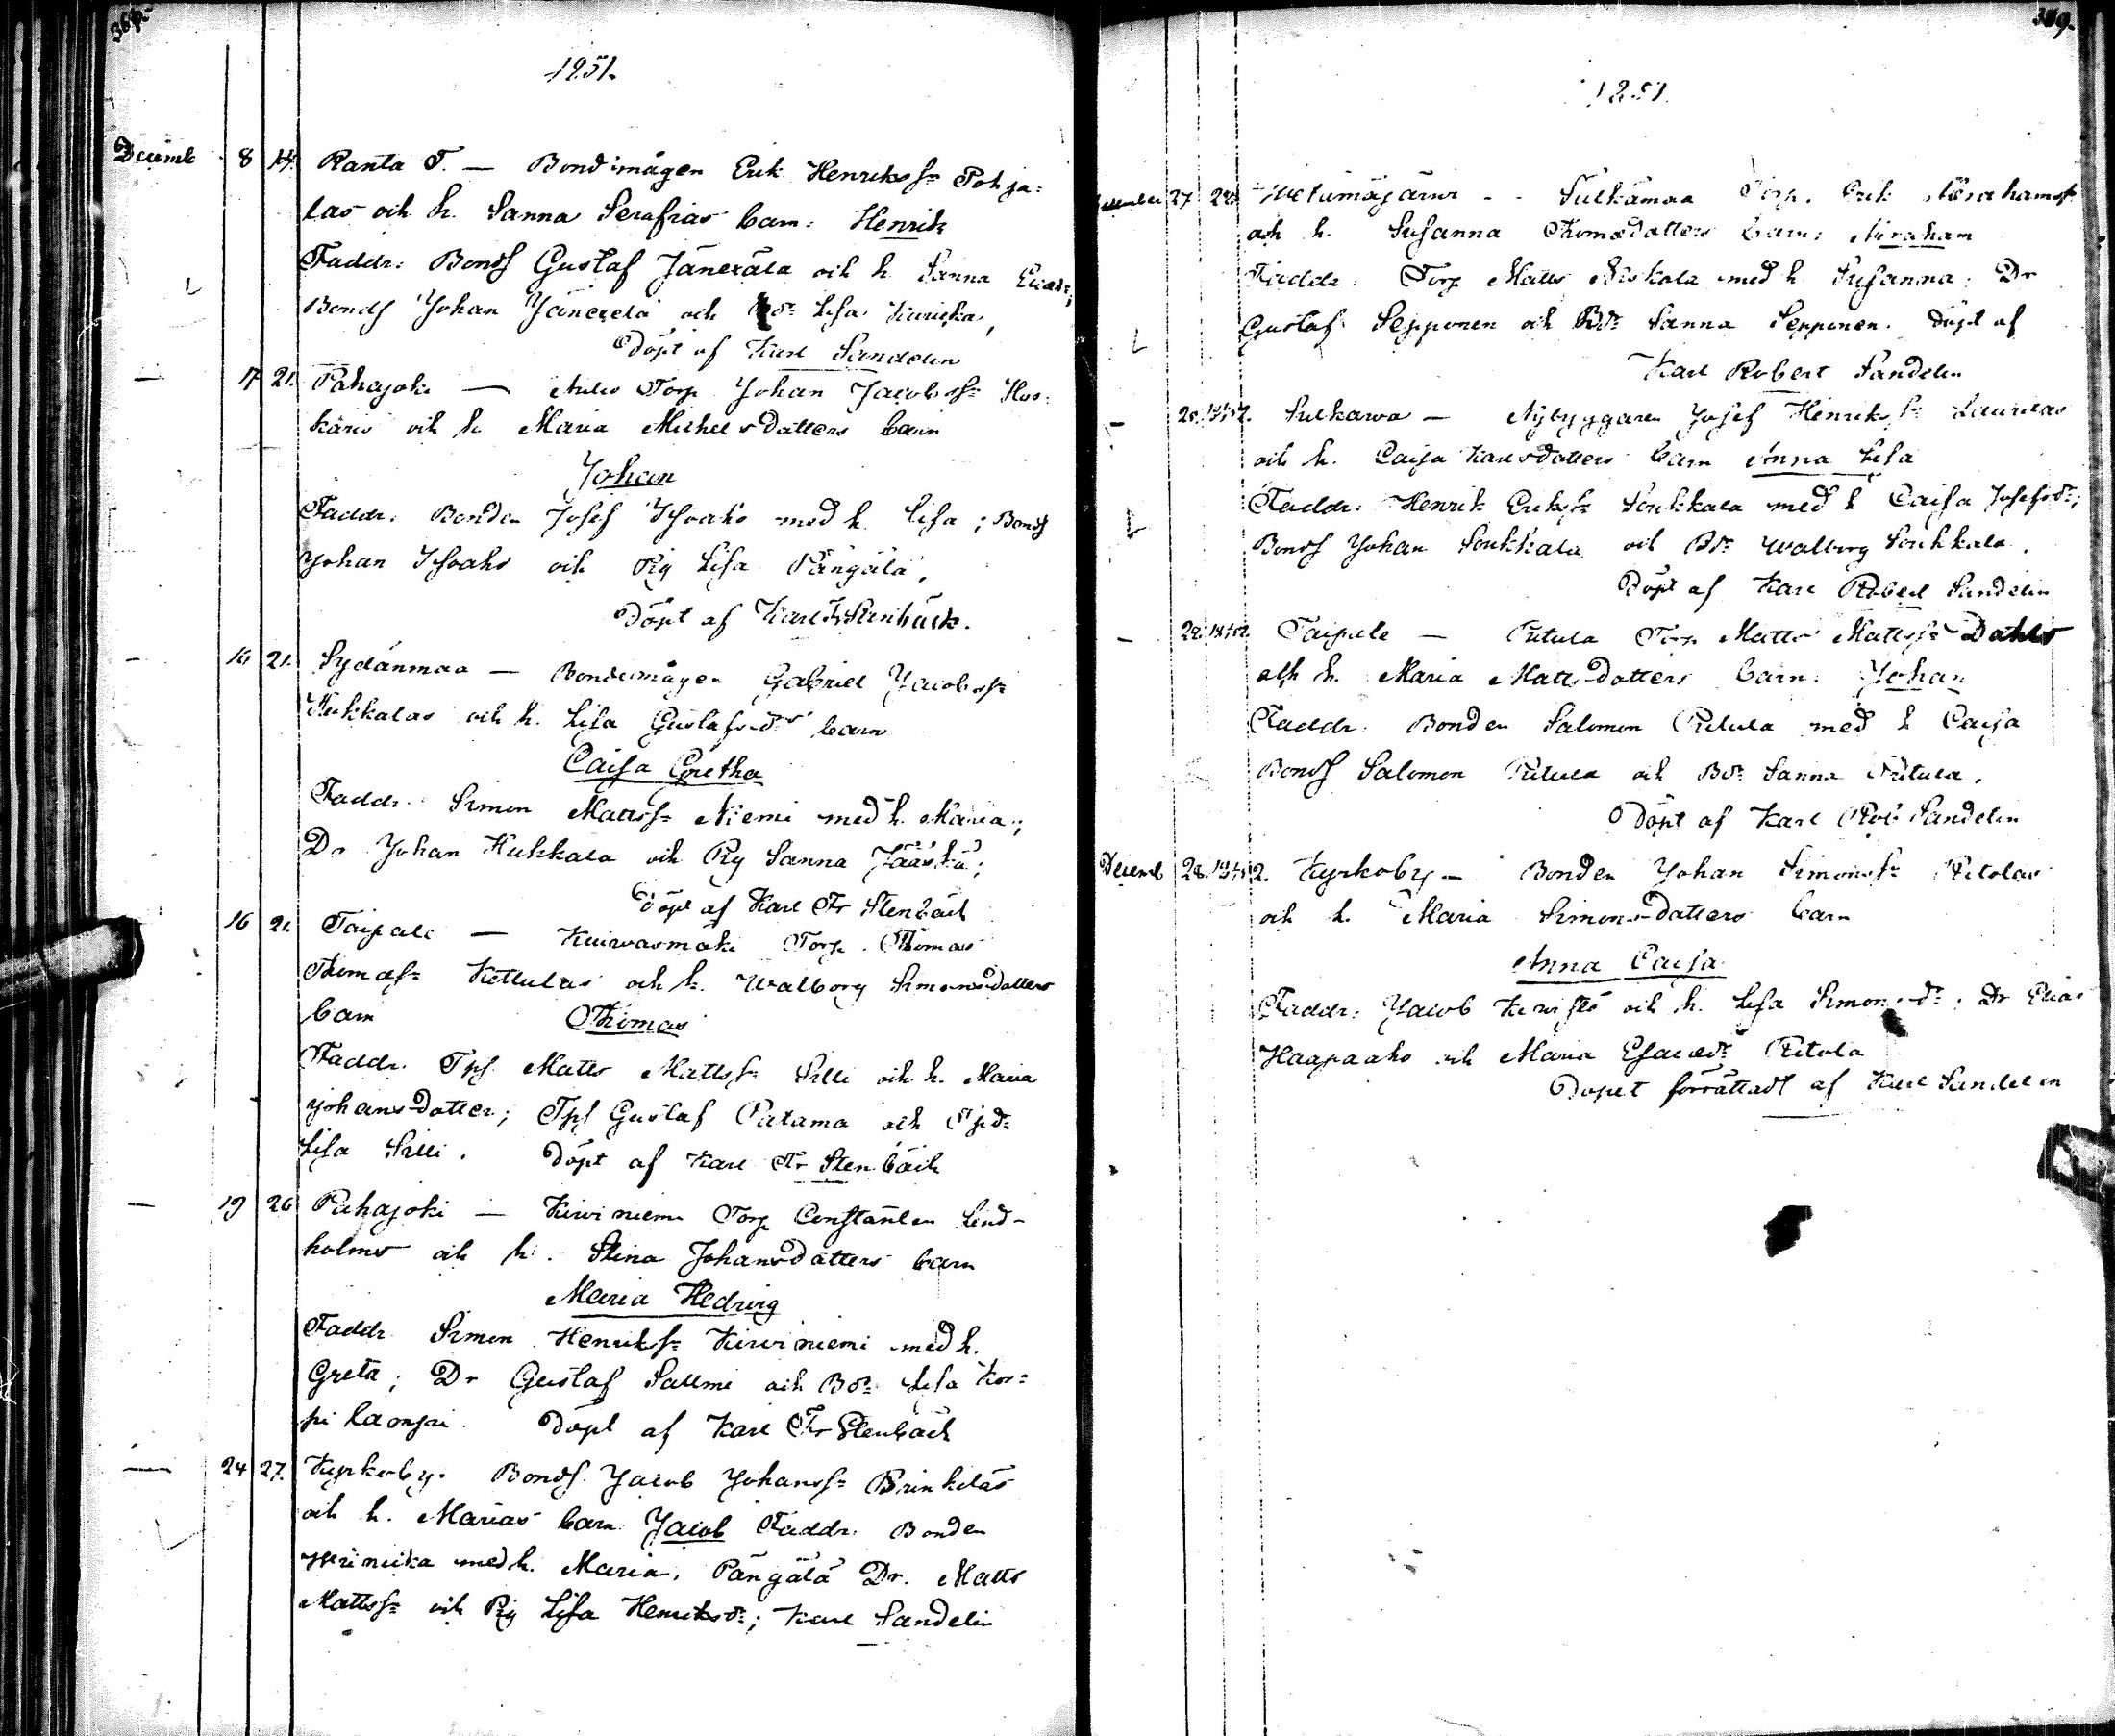 368.
1851.
Decemb 8 14. Ranta T. — Bondemågen Erik Henrikss:n Pohja=
las och h. Sanna Serafias barn: Henrik
Faddr: Bonds Gustaf Jänexäla och h. Sanna
Bonds Johan Jänexela och Bd:r Lisa
Döpt af Karl Sandelin
— 17 21. Pahajoki — Torp Johan Jacobss:n Hos=
käris och h. Maria Michelsdatters barn
Johan
Faddr. Bonden Josef Isoaho med h. Lisa; Bonds
Johan Isoaho och Pig Lisa Pängälä,
Döpt af Karl Fr Stenbäck.
— 16 21. Sydänmaa — Bondemågen Gabriel Jacobss:n
Kukkalas och h. Lisa Gustafsd:rs barn
Caisa Gretha
Faddr. Simon Mattss:n Niemi med h. Maria;
Dr Johan Kukkala och Pig Sanna Jääskä;
Döpt af Karl Fr Stenbäck
16 21. Taipale — Kuivasmäki Torp. Thomas
Thomass:n Kettulas och h. Walborg Simonsdatters
barn Thomas
Faddr. Tps Matts Mattss:n Silli och h. Maria
Johansdatter; Tps Gustaf Patama och Tpd:r
Lisa Silli. Döpt af Karl Fr Stenbäck
— 19 26 Pahajoki — Kiviniemi Torp Constantin Lind-
holms och h. Stina Johansdatters barn
Maria Hedvig
Faddr Simon Henrikss:n Kiviniemi med h.
Greta; Dr Gustaf Salmi och Bd:r Lisa Kor=
pilaonpä. Döpt af Karl Fr Stenbäck
— 24 27. Kyrkoby. Bonds. Jacob Johanss:n Brinkilas
och h. Marias barn Jacob Faddr. Bonden
med h. Maria. Pängälä Dr. Matts
Mattss:n och Pig Lisa Henriksd:r; Karl Sandelin
369.
1851.
December 27 28. — Sulkämaa Torp. Erik Abrahamss:n
och h. Susanna Thomædatters barn: Abraham
Faddr. Torp Matts Niskala med h Susanna. Dr
Gustaf Sepponen och Bd:r Sanna Sepponen. Döpt af
Karl Robert Sandelin
— 28. Sulkawa — Nybyggaren Josef Henrikss:n Laurilas
och h. Caisa Karlsdatters barn Anna Lisa
Faddr. Henrik Erikss:n Soukkala med h Caisa Josefsd:r;
Bonds Johan Soukkala och Bd:r Walborg Soukkala.
Döpt af Karl Robert Sandelin
— 29. Taipale — Pitula Torp Matts Mattss:n Dahls
och h. Maria Mattsdatters barn. Johan
Faddr. Bonden Salomon Pitula med h Caisa
Bonds Salomon Pitula och Bd:r Sanna Pitula.
Döpt af Karl Rob: Sandelin
Decemb 28. Kyrkoby — Bonden Johan Simonss:n Pitolas
och h. Maria Simonsdatters barn
Anna Caisa
Faddr: Jacob Kivistö och h. Lisa Simonsd:r; Dr Elias
Haapaaho och Maria Esaiæd:r Pitola
Dopet förrättadt af Karl Sandelin